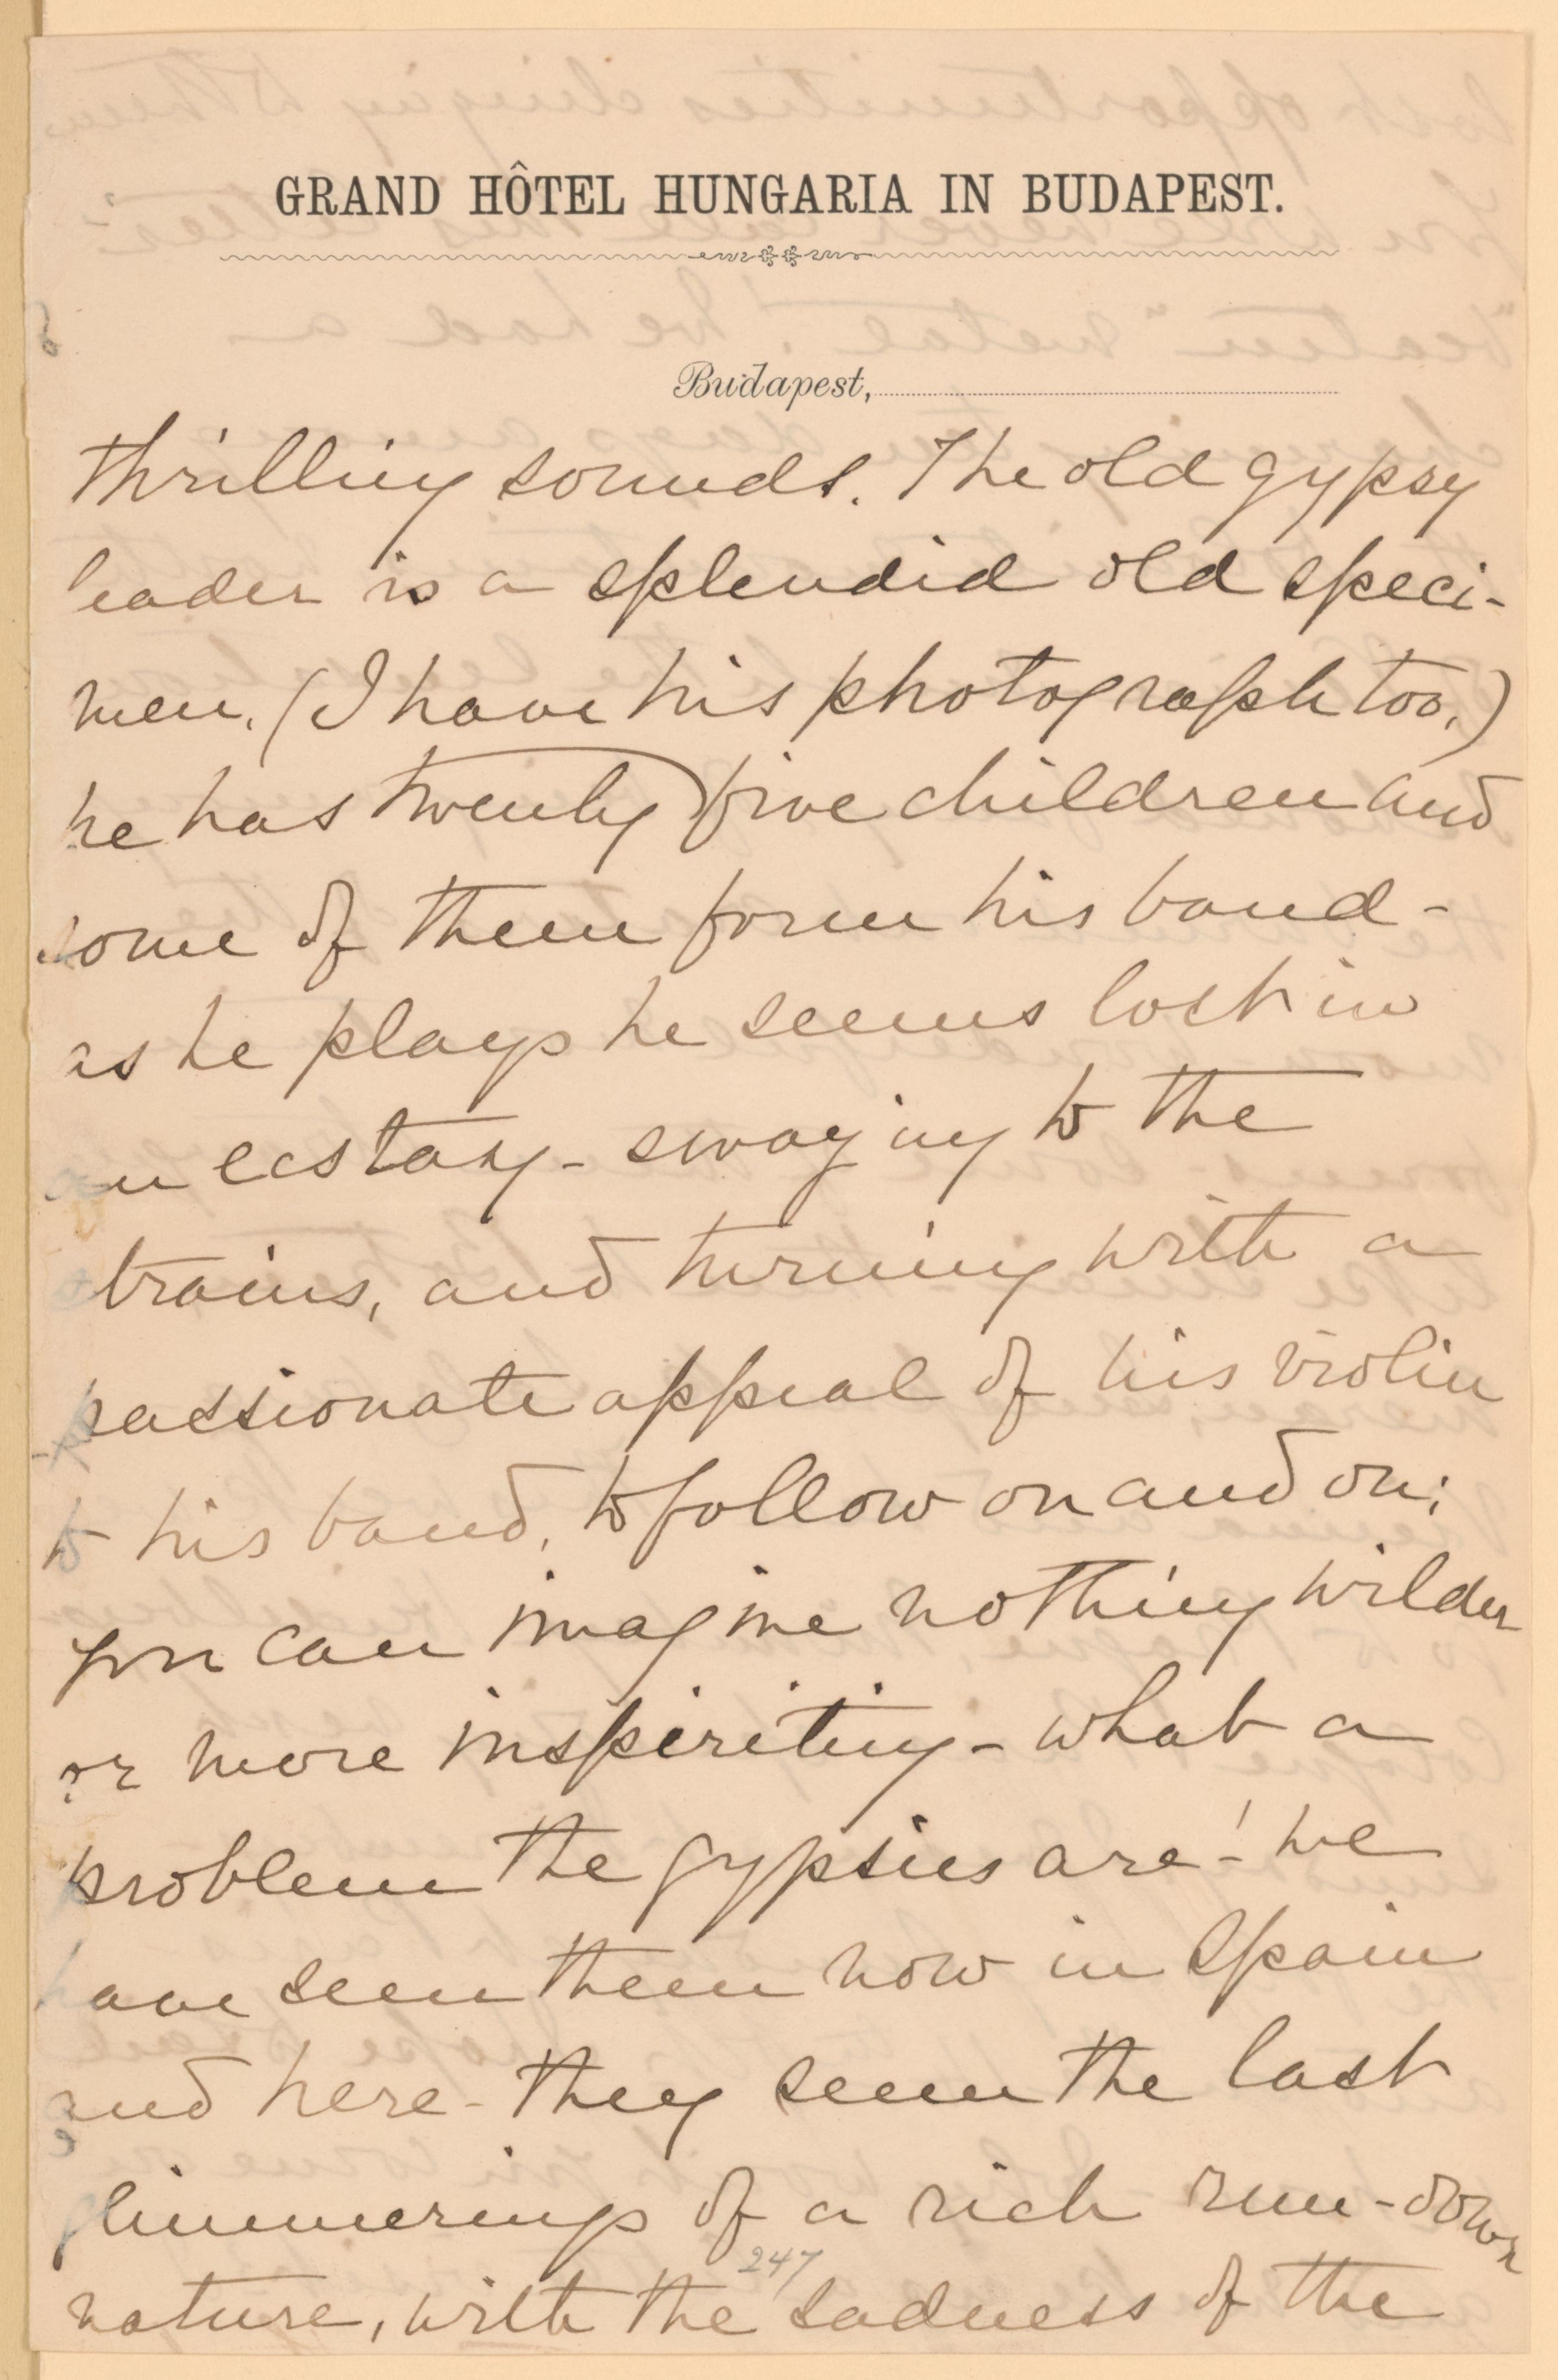 GRAND HÔTEL HUNGARIA IN BUDAPEST.
Budapest,
thrilling sounds. The old gypsy
leader is a splendid old speci-
men. (I have his photograph too.)
he has twenty five children and
some of them form his band -
as he plays he seems lost in
an ecstasy - swaying to the
strains, and turning with a
passionate appeal of his violin
to his band, to follow on and on;
you can imagine nothing wilder
or more inspiriting - what a
problem the gypsies are! - we
have seen them now in Spain
and here - they seem the last
glimmerings of a rich run-down
247
nature, with the sadness of the